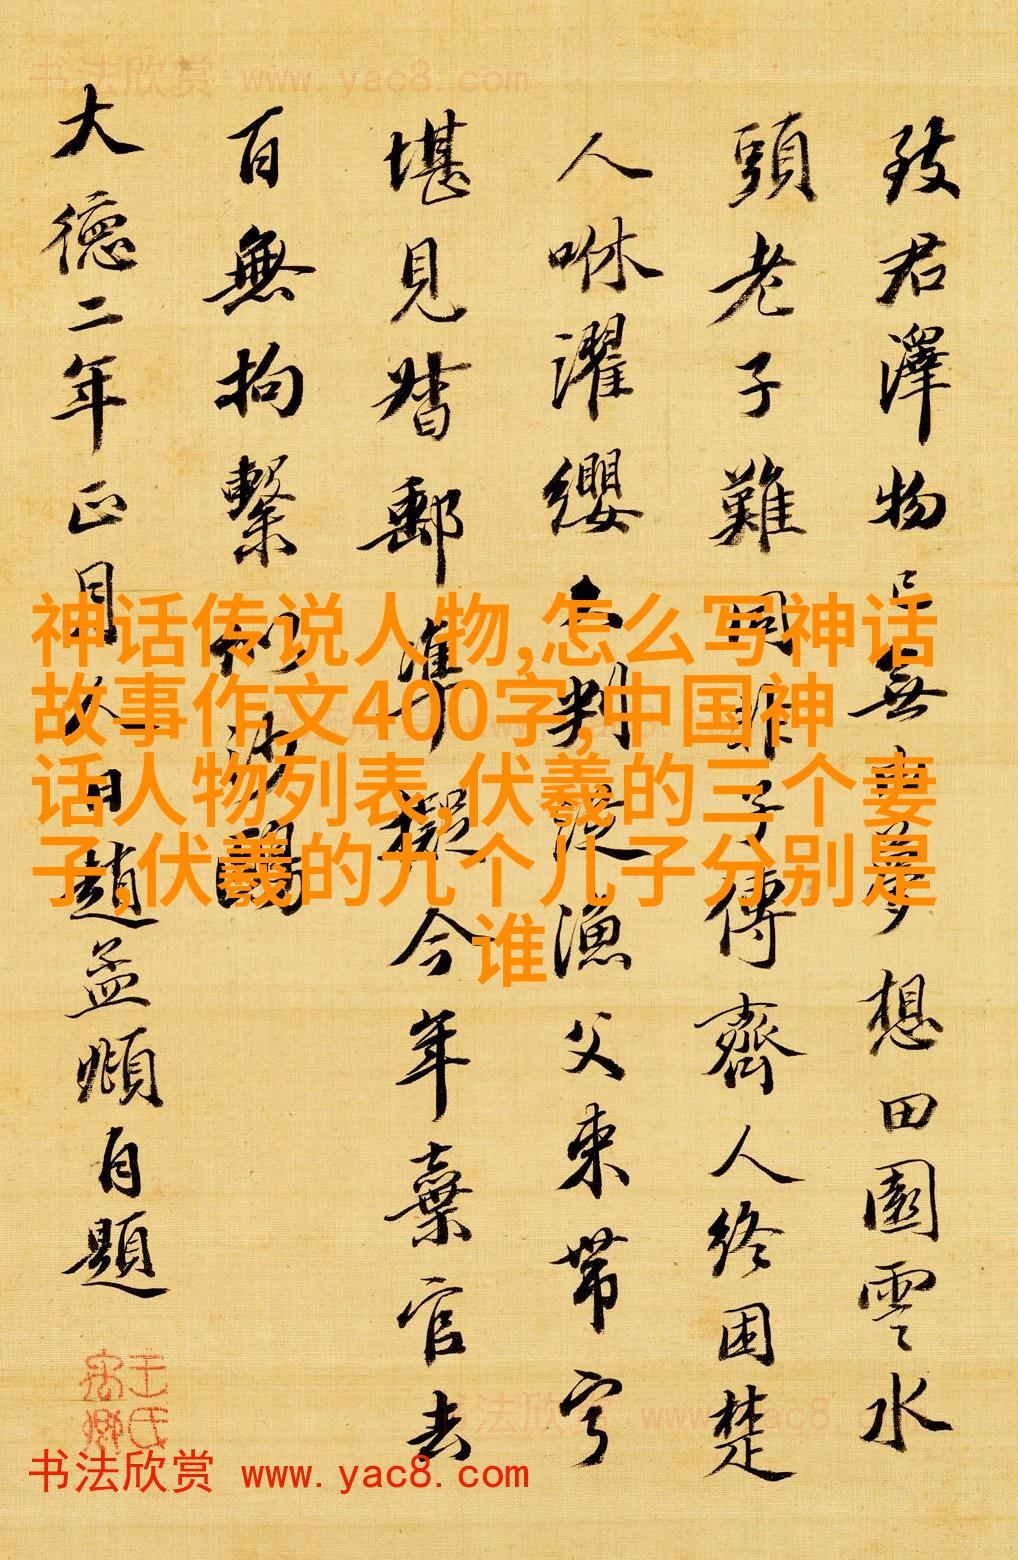 书法欣赏 www.yac8.com
致君澤物已無由夢想田園雲水
頭老子難同非子傳齊人終困楚
人咻濯纓久判從漁父束帶寧
堪見督郵準擬今年棄官去
百無拘繫似沙鷗
大德二年正月人日趙孟頫自題
神话传说人物,怎么写神话
故事作文400字,中国神
话人物列表,伏羲的三个妻
子,伏羲的九个儿子分别是
谁
书法欣赏 www.yac8.com